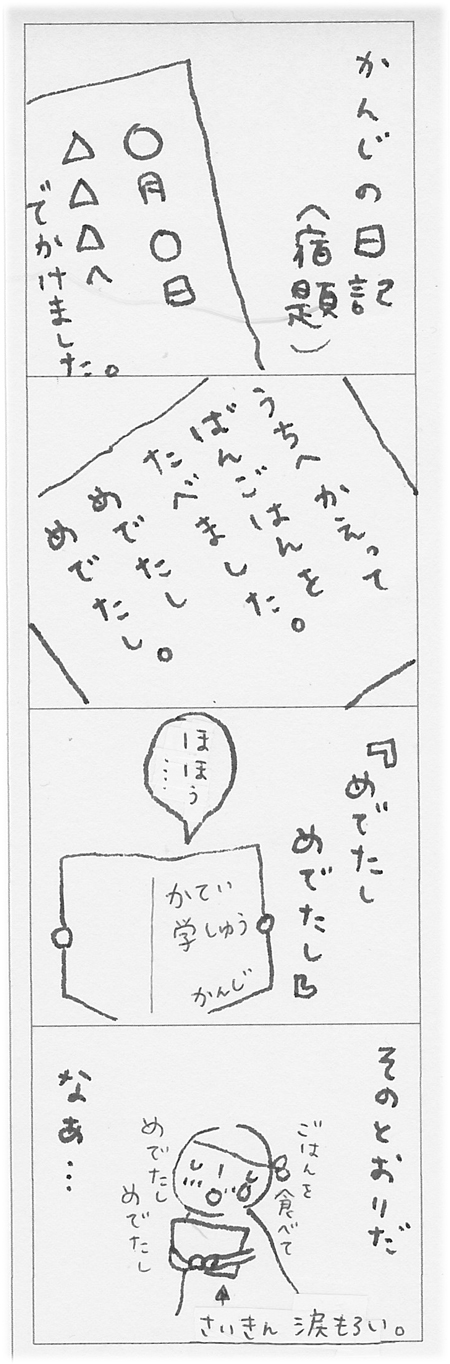 かんじの日記
（宿題）
〇月〇日
△△△へ
でかけました。
うちへかえって
ばんごはんを
たべました。
めでたし
めでたし。
『めでたし
めでたし』
ほほう…
かてい
学しゅう
かんじ
そのとおりだ
なぁ…
ごはんを
食べて
めでたし
めでたし
さいきん 涙もろい。